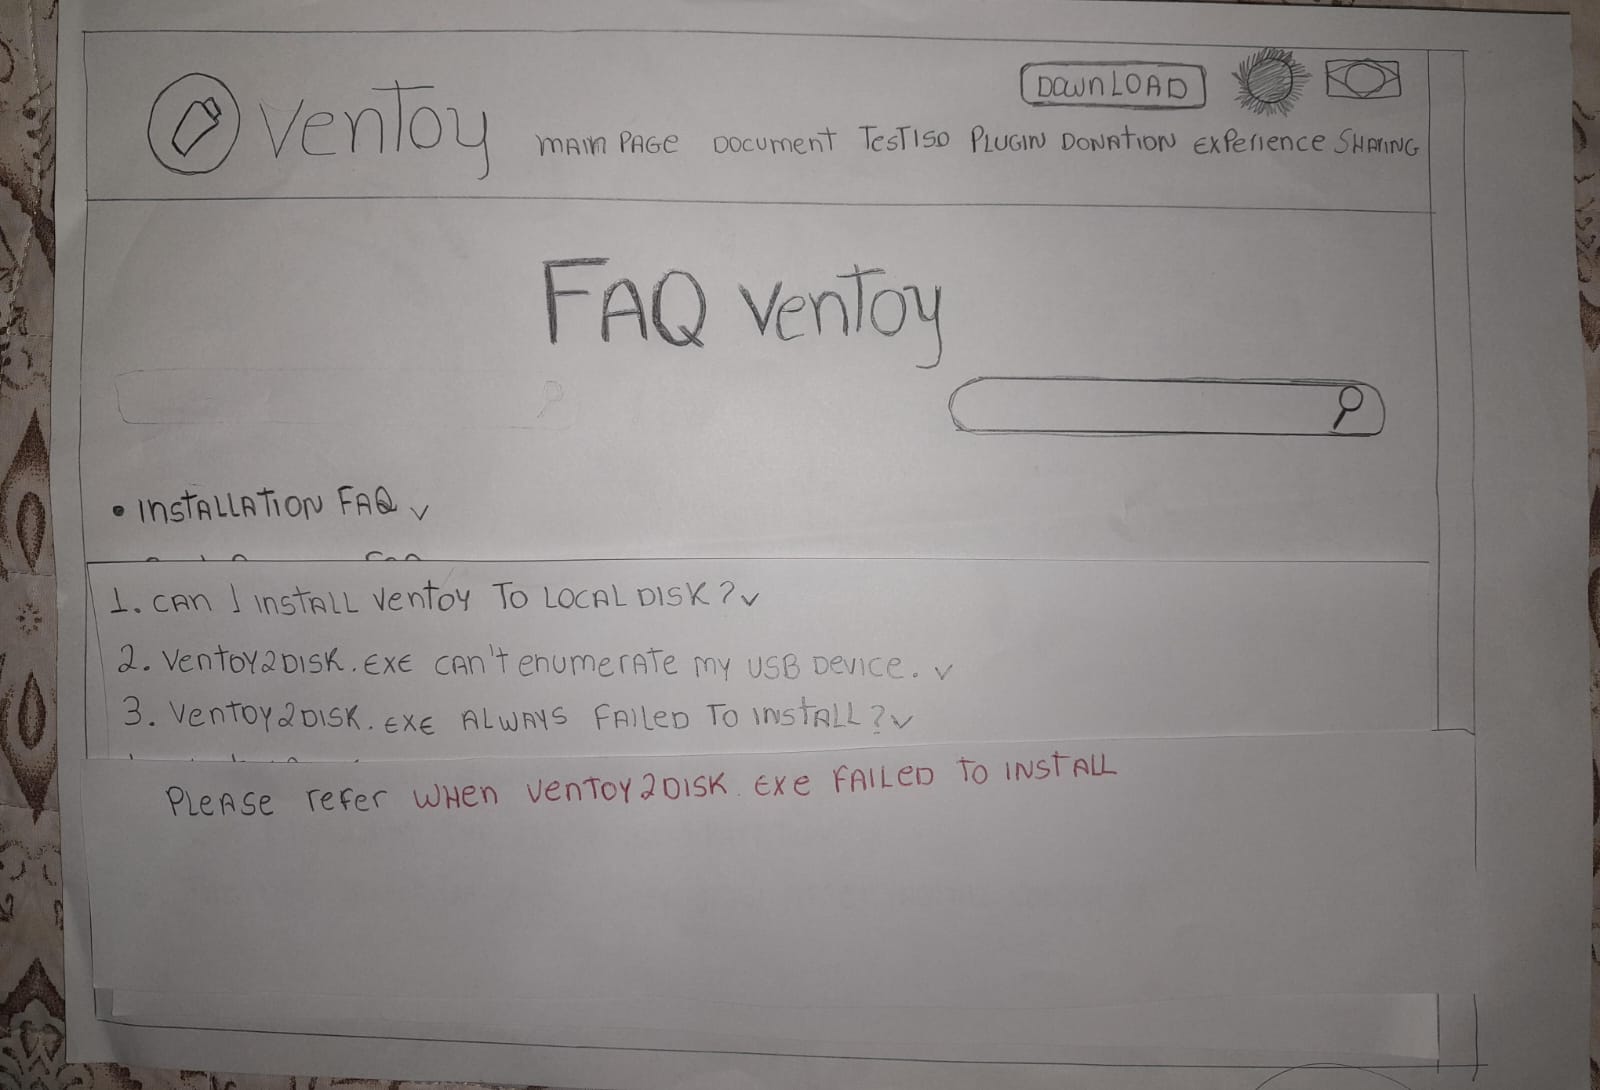 DOWNLOAD
Ventoy
MAIN PAGE DOCUMENT TESTISO PLUGIN DONATION EXPERIENCE SHARING
FAQ Ventoy
• INSTALLATION FAQ
1. CAN I INSTALL VENTOY TO LOCAL DISK?
2. VENTOY2DISK.EXE CAN'T ENUMERATE MY USB DEVICE.
3. VENTOY2DISK.EXE ALWAYS FAILED TO INSTALL?
PLEASE REFER WHEN VENTOY2DISK.EXE FAILED TO INSTALL